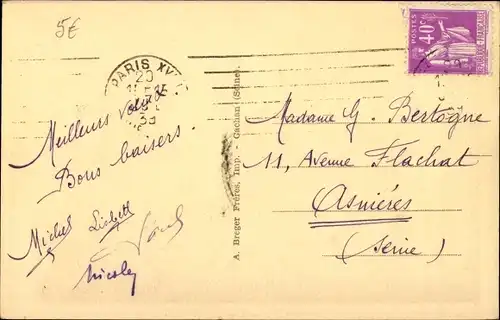 5€
PARIS XV
20
35
40c
POSTES
RÉPUBLIQUE FRANÇAISE
Meilleurs voeux
Bons baisers.
Michel Lisbeth
Nicole
A. Breger Frères, Imp. - Cachan (Seine).
Madame G. Bertogne
11, Avenue Flachat
Asnières
(Seine)